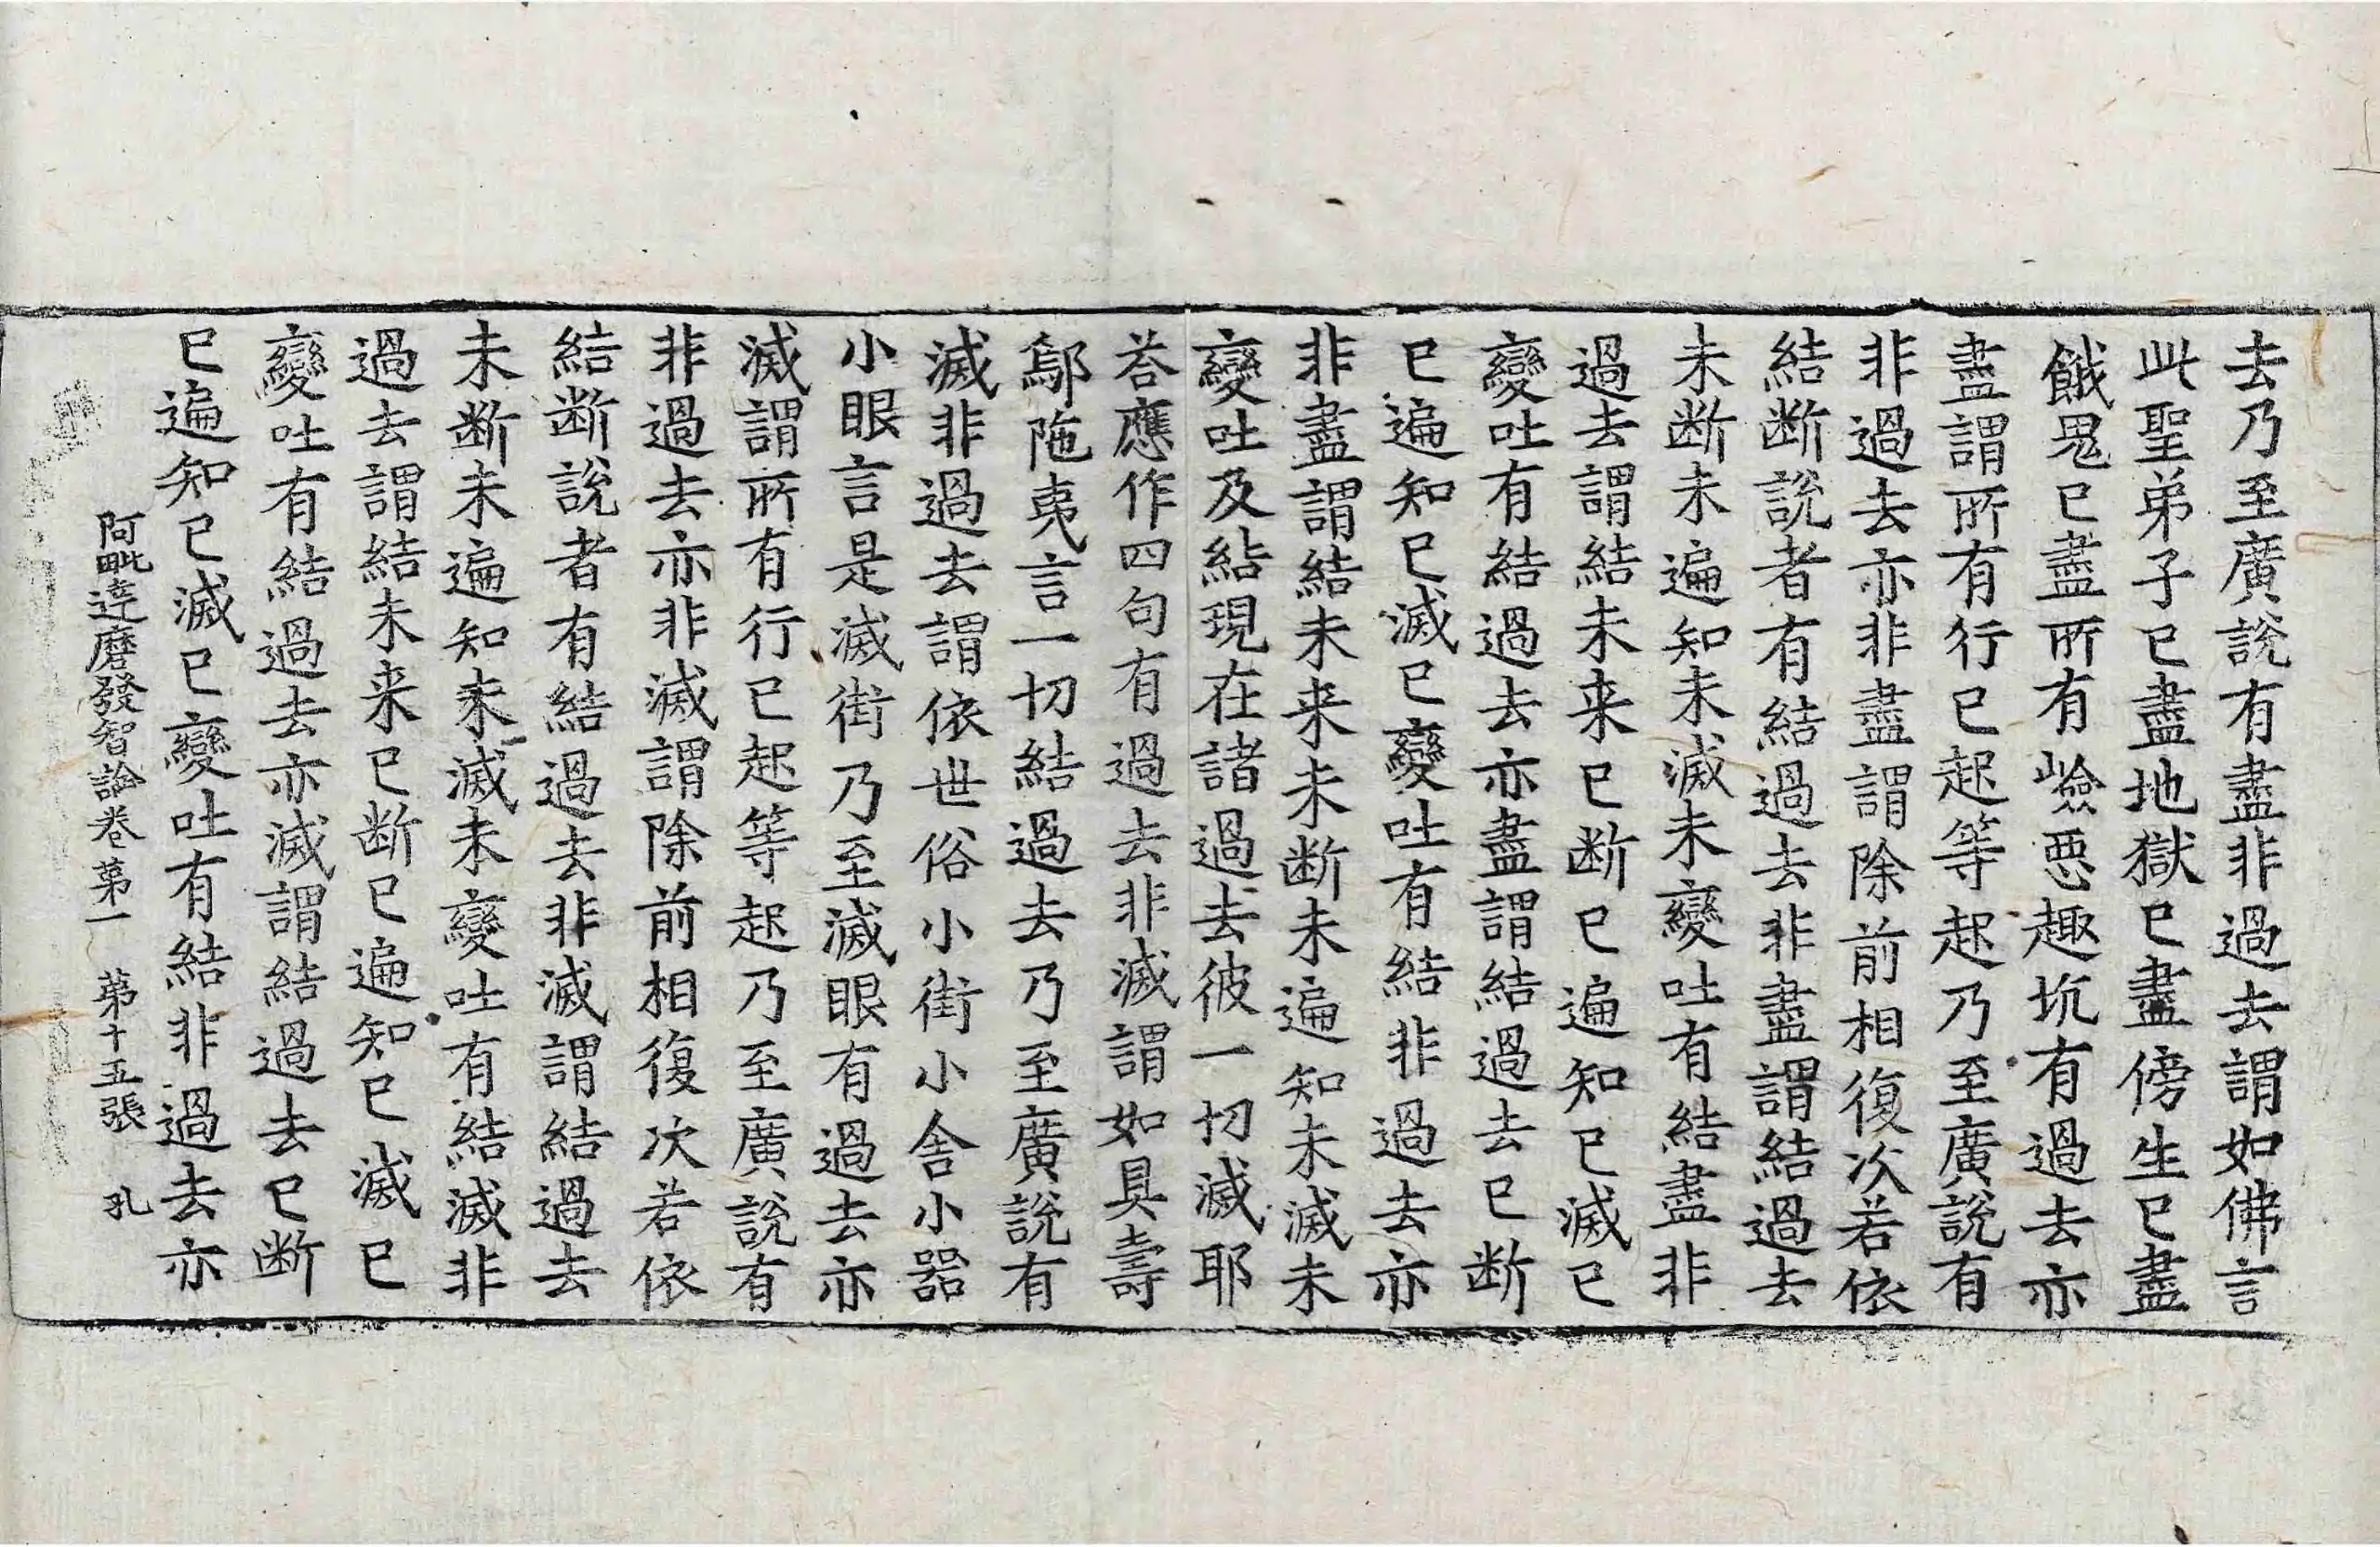 去乃至廣說有盡非過去謂如佛言
此聖弟子已盡地獄已盡傍生已盡
餓鬼已盡所有嶮惡趣坑有過去亦
盡謂所有行已起等起乃至廣說有
非過去亦非盡謂除前相復次若依
結斷說者有結過去非盡謂結過去
未断未遍知未滅未變吐有結盡非
過去謂結未来已断已遍知已滅已
變吐有結過去亦盡謂結過去已断
已遍知已滅已變吐有結非過去亦
非盡謂結未来未断未遍知未滅未
變吐及結現在諸過去彼一切滅耶
荅應作四句有過去非滅謂如具壽
鄔陁夷言一切結過去乃至廣說有
滅非過去謂依世俗小街小舍小器
小眼言是滅街乃至滅眼有過去亦
滅謂所有行已起等起乃至廣說有
非過去亦非滅謂除前相復次若依
結断說者有結過去非滅謂結過去
未断未遍知未滅未變吐有結滅非
過去謂結未来已断已遍知已滅已
變吐有結過去亦滅謂結過去已断
已遍知已滅已變吐有結非過去亦
阿毗達磨發智論卷第一 第十五張 孔